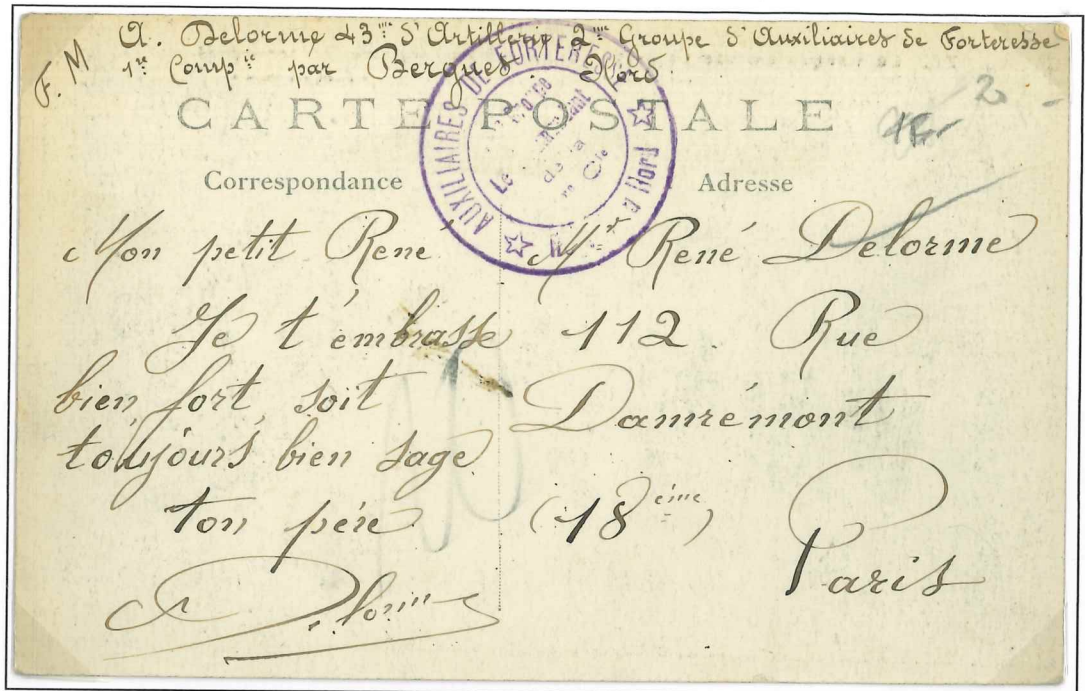 F. M
A. Delorme 43me d'Artillerie 2me Groupe d'Auxiliaires de Forteresse
1re Compie par Bergues Nord
CARTE POSTALE
2
AUXILIAIRES DE FORTERESSE
Le
de la
Cie
Correspondance
Adresse
Mon petit René
Je t'embrasse
bien fort, soit
toujours bien sage
ton père
Delorme
Mr René Delorme
112 Rue
Damrémont
(18ème)
Paris